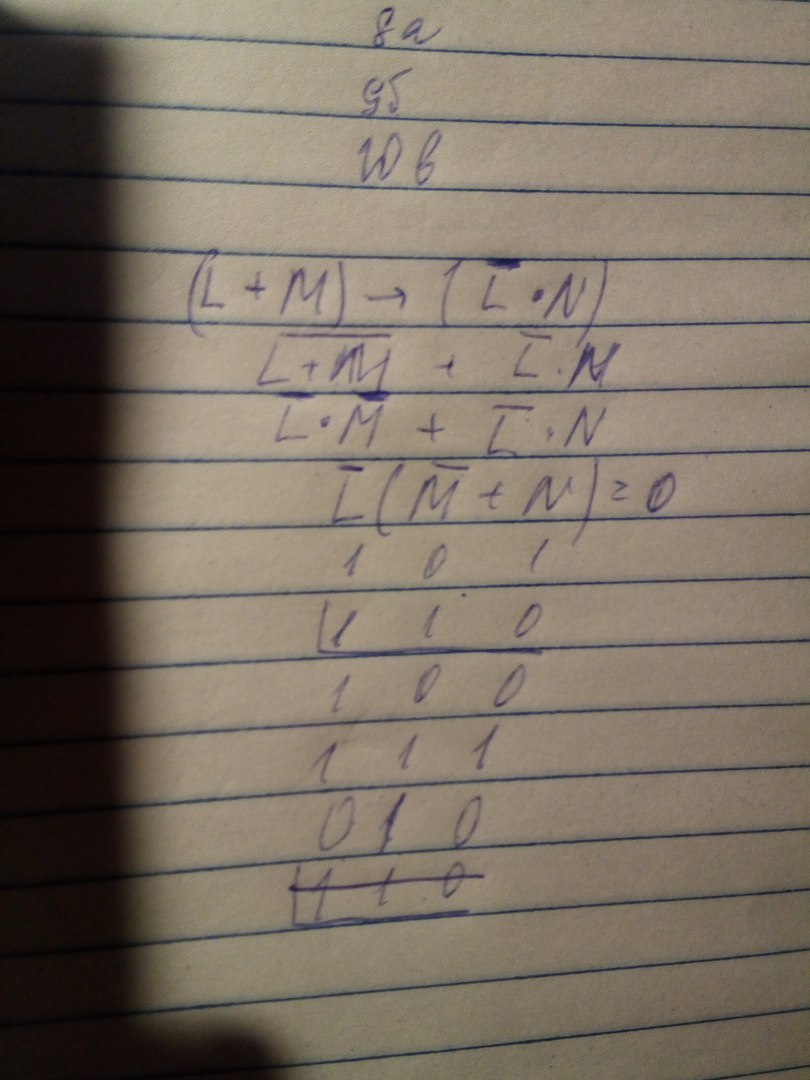 8а
9б
10 в
(L + M) → (L̅ · N)
L̅ ̅+̅ ̅M̅ + L̅ · N
L̅ · M̅ + L̅ · N
L̅(M̅ + N) = 0
1 0 1
1 1 0
1 0 0
1 1 1
0 1 0
1 1 0